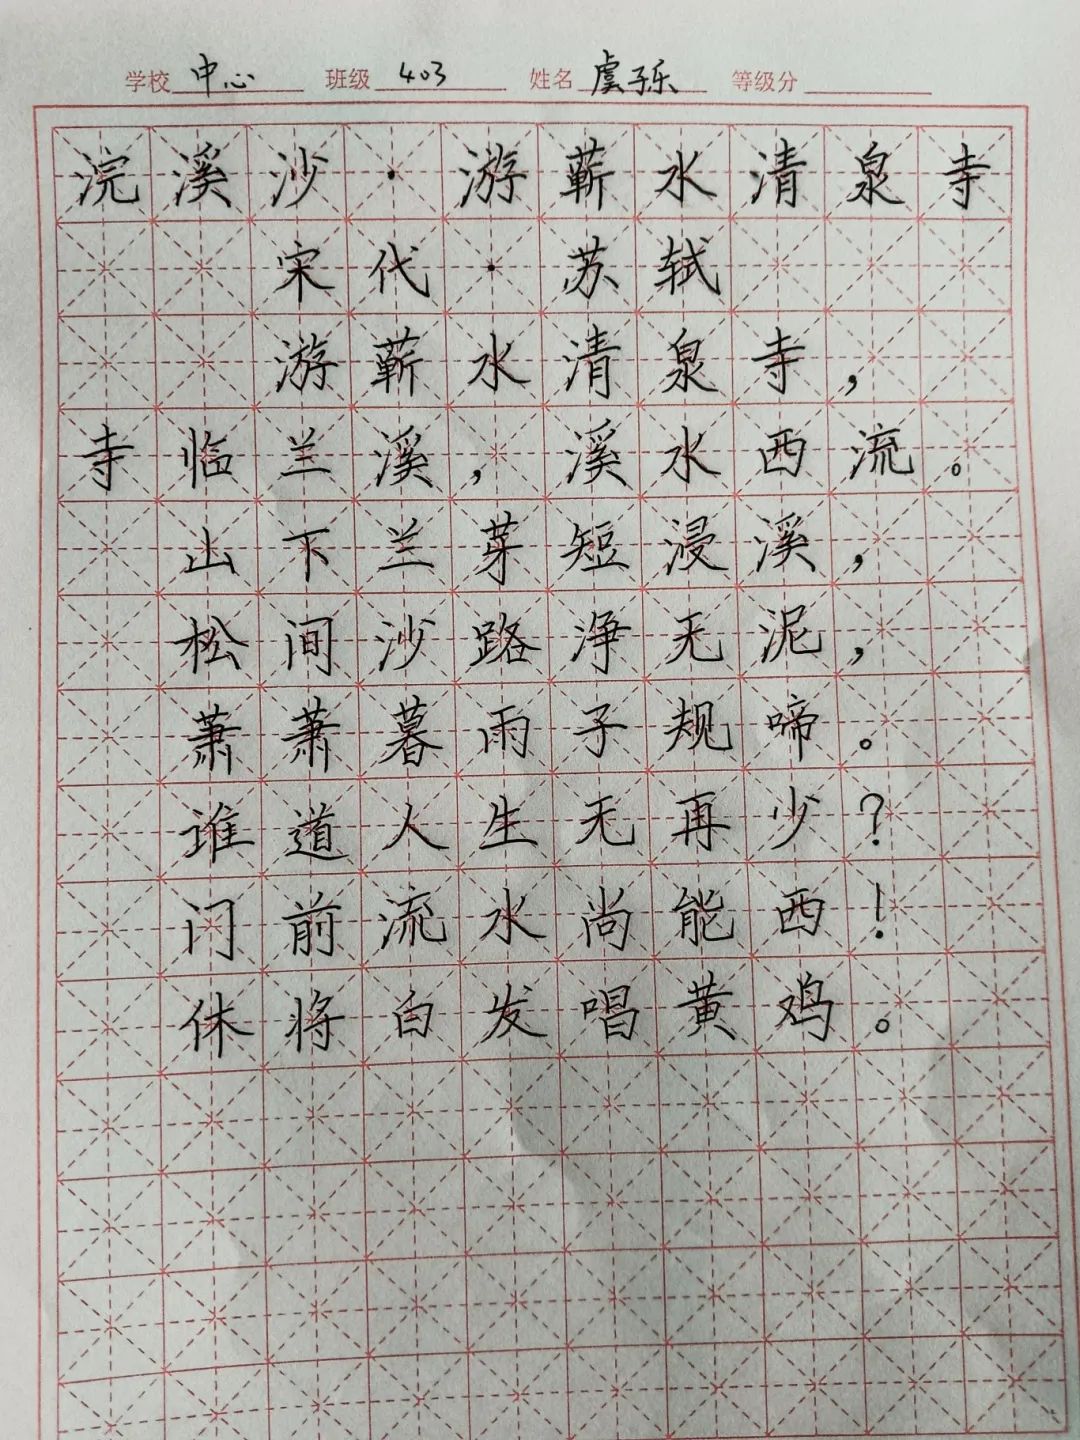 学校 中心 班级 403 姓名 虞子乐 等级分
浣溪沙·游蕲水清泉寺
宋代·苏轼
游蕲水清泉寺，
寺临兰溪，溪水西流。
山下兰芽短浸溪，
松间沙路净无泥，
萧萧暮雨子规啼。
谁道人生无再少？
门前流水尚能西！
休将白发唱黄鸡。